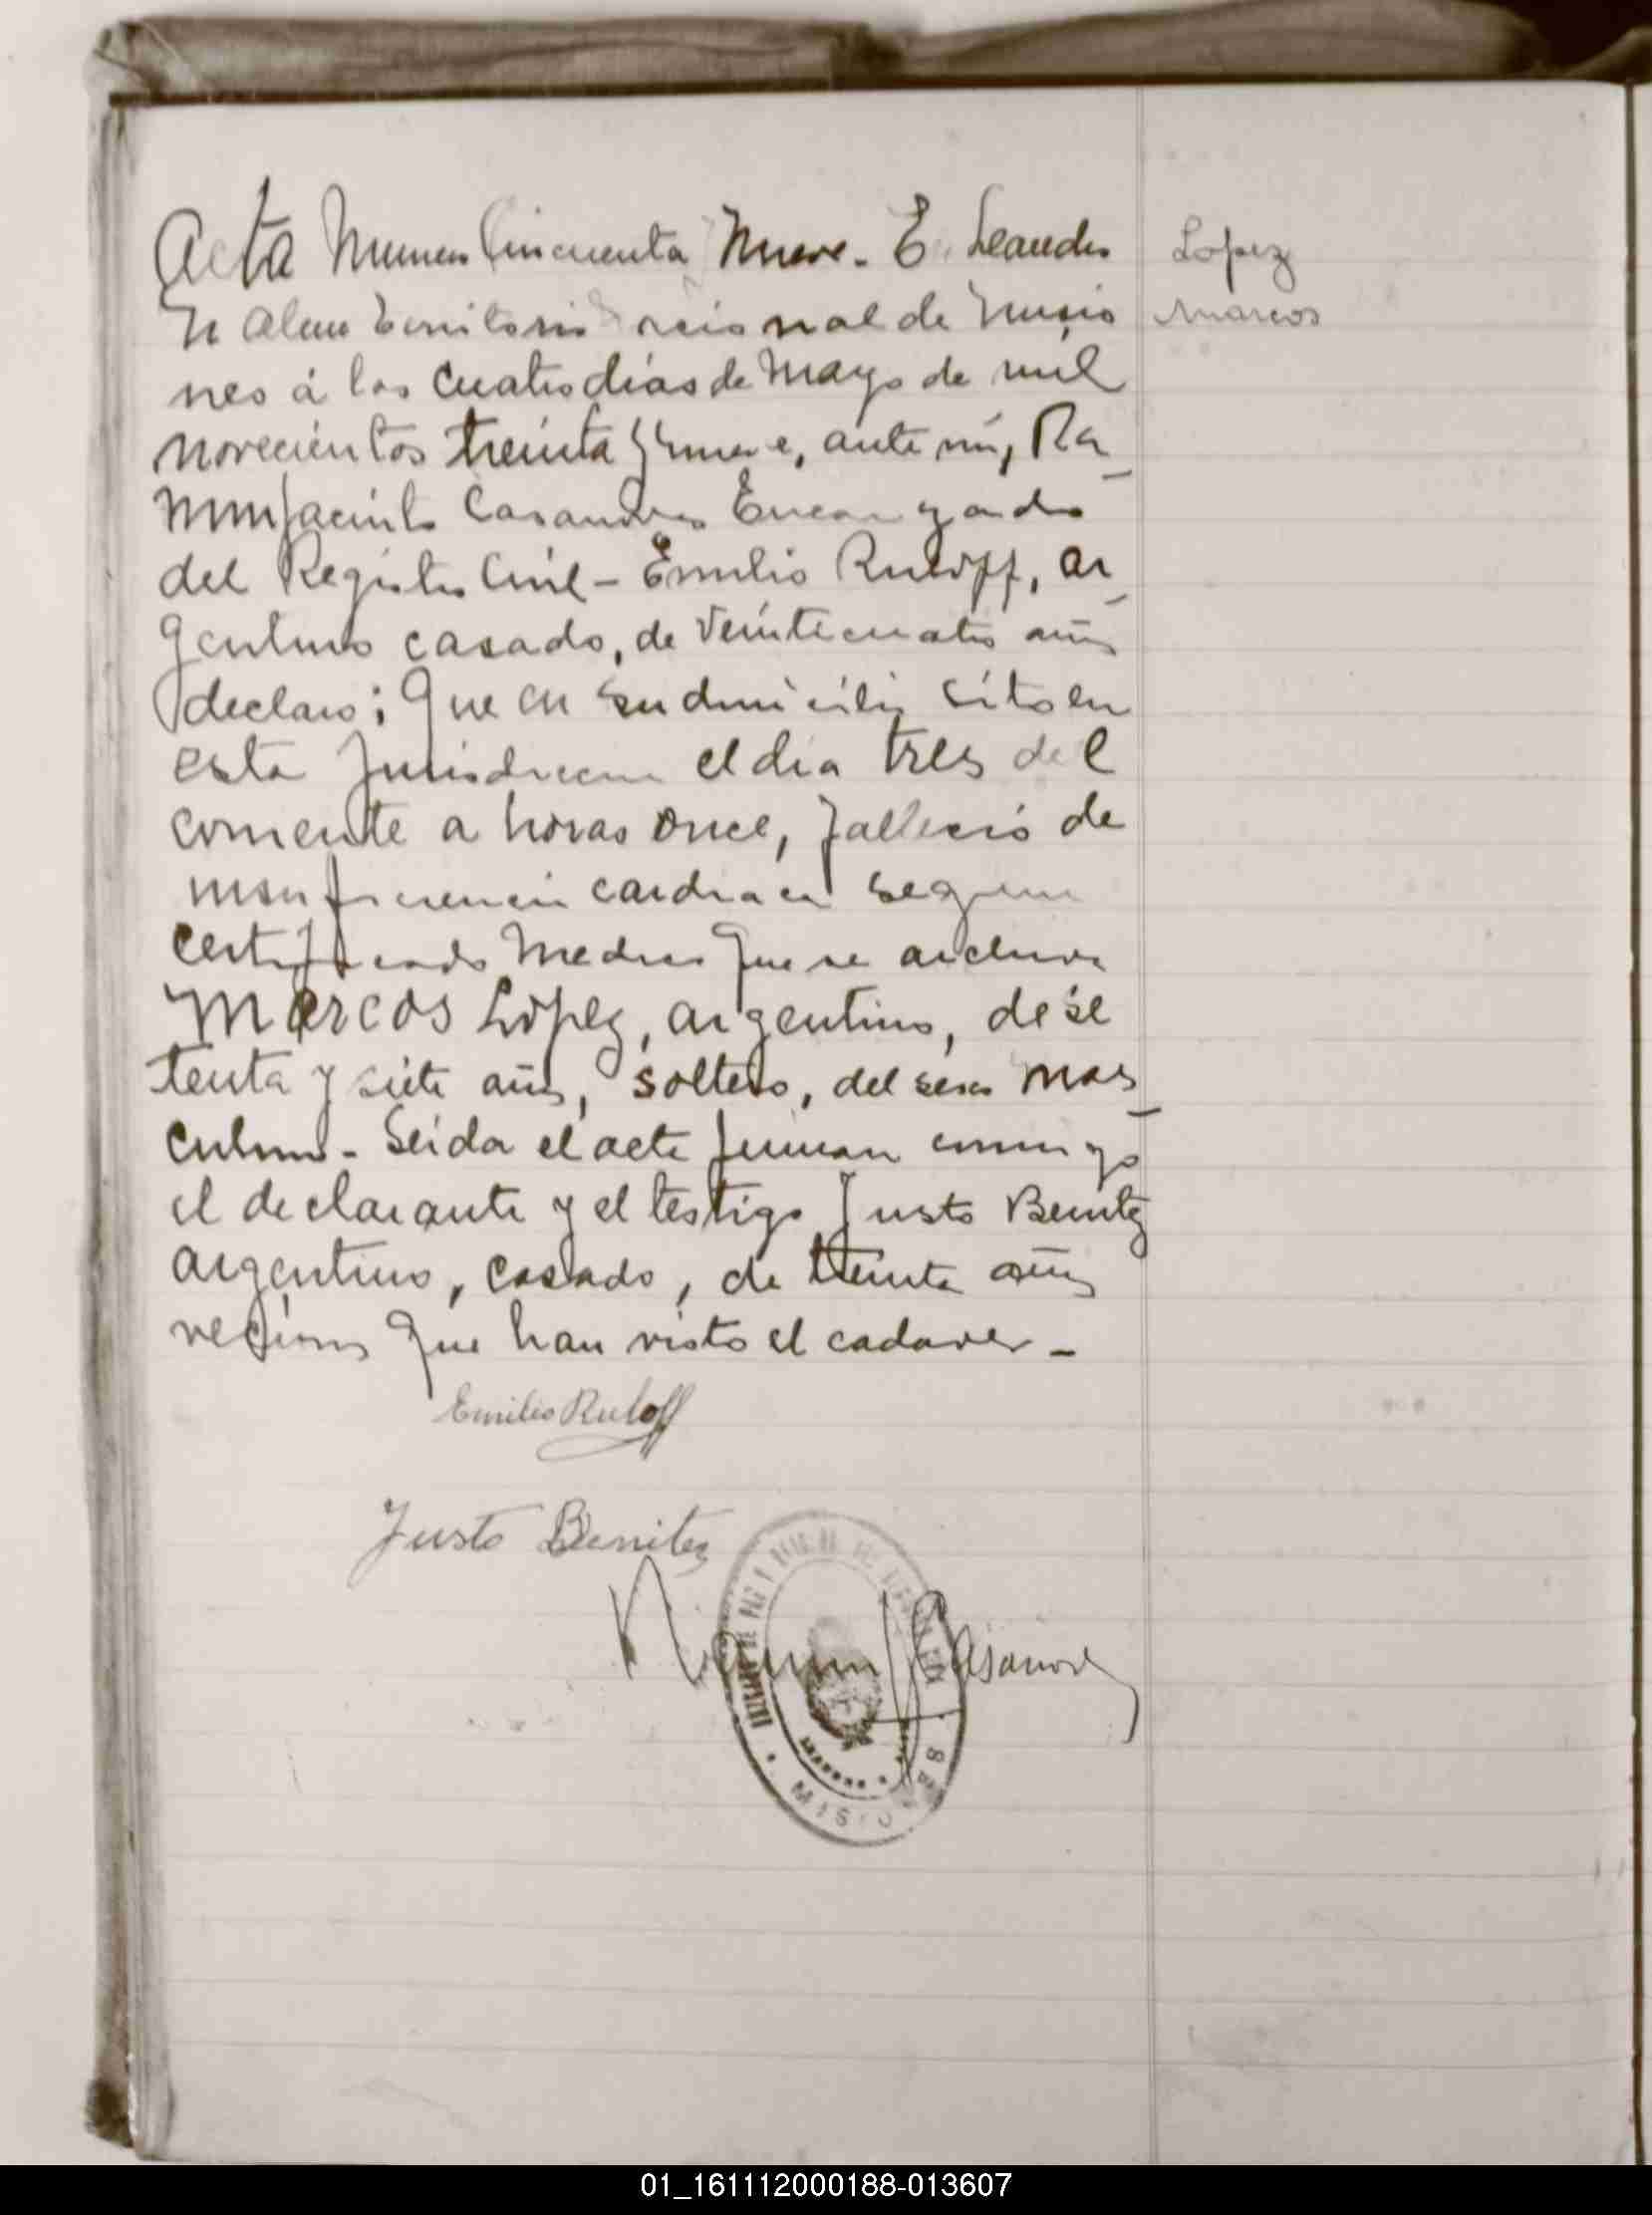 Acta Numero Cincuenta Nueve. E. Leandro
N Alem Territorio nacional de Misio
nes á los cuatro dias de Mayo de mil
novecientos treinta y nueve, ante mi, Ra
mon Jacinto Casanova Encargado
del Registro Civil - Emilio Ruloff, ar_
gentino casado, de veinticuatro años
declaro: Que en su domicilio sito en
esta jurisdiccion el dia tres del
corriente a horas once, falleció de
insuficiencia cardiaca segun
certificado Medico que se archiva
Marcos Lopez, argentino, de se
tenta y siete años, soltero, del sexo mas_
culino - Leida el acta firman conmigo
el declarante y el testigo Justo Benitez
argentino, casado, de treinta años
vecinos que han visto el cadaver _
Lopez
Marcos
Emilio Ruloff
Justo Benitez
Ramon J Casanova
MISIONES
01_161112000188-013607